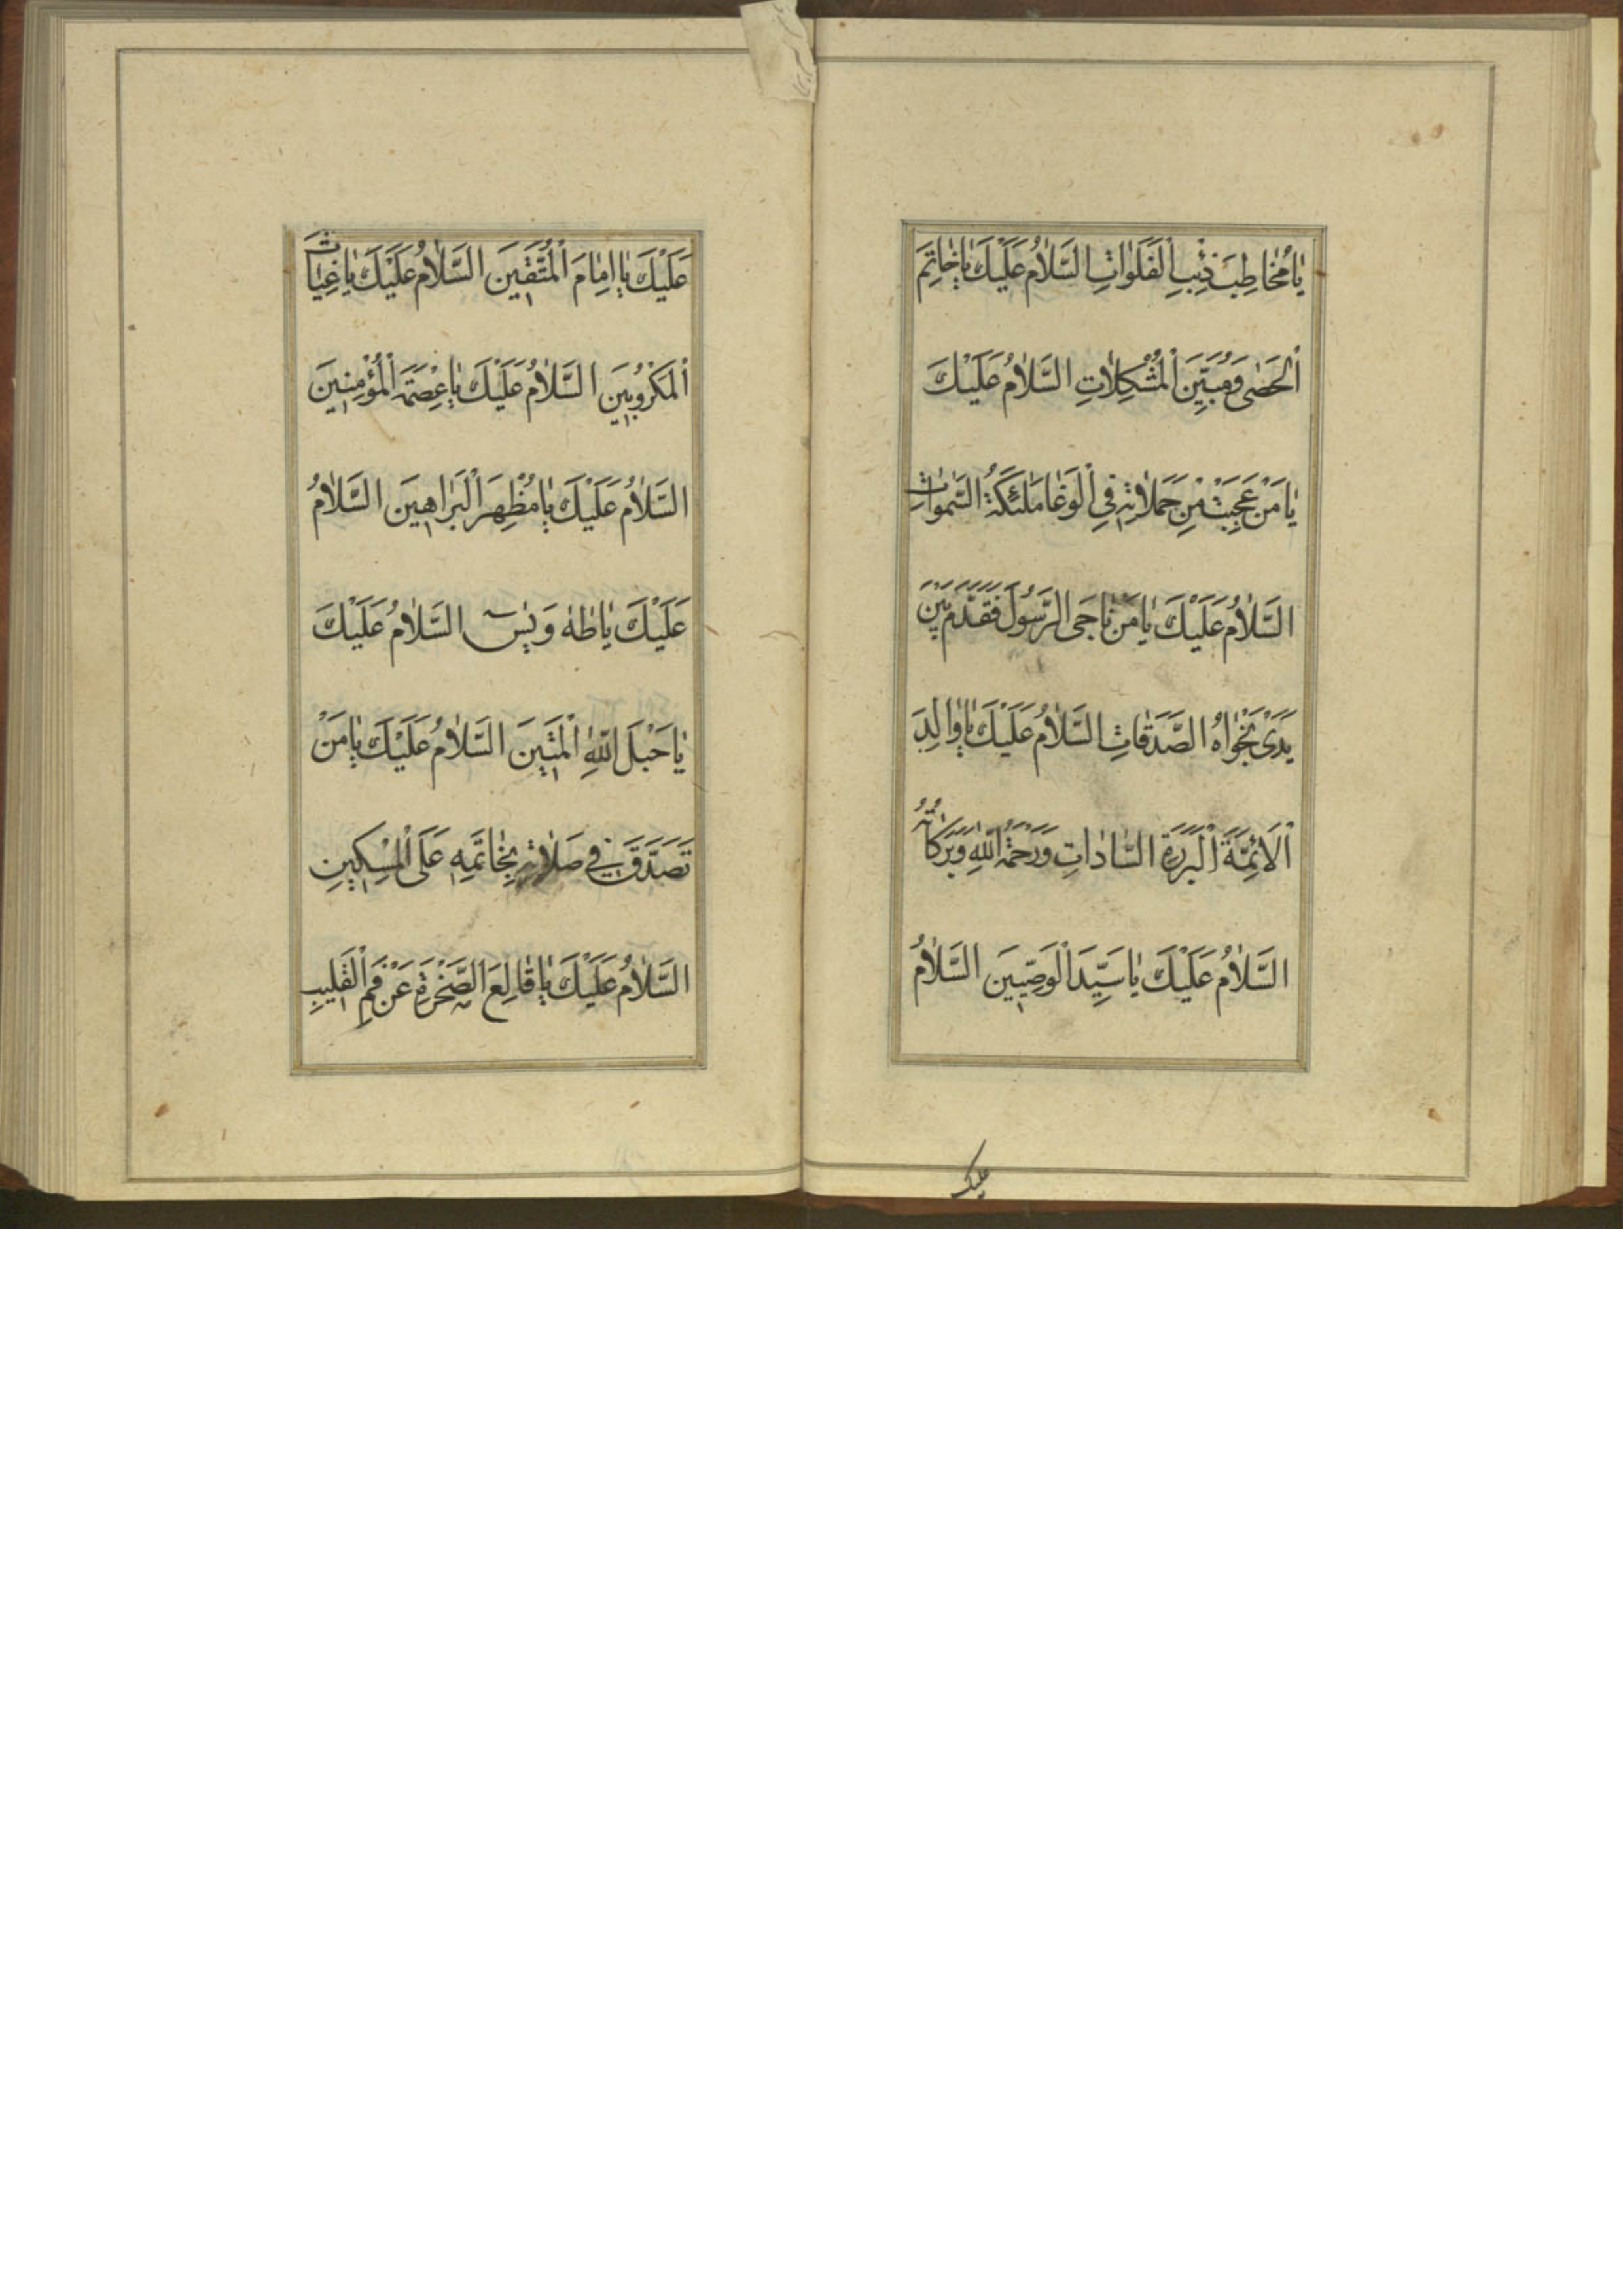 يٰا مُخٰاطِبَ ذِئْبِ الْفَلَوٰاتِ السَّلٰامُ عَلَيْكَ يٰا خٰاتِمَ
الْحَصٰى وَمُبَيِّنَ الْمُشْكِلٰاتِ السَّلٰامُ عَلَيْكَ
يٰا مَنْ عَجِبَتْ مِنْ حَمَلٰاتِهِ فِي الْوَغٰا مَلٰئِكَةُ السَّمٰوٰاتِ
السَّلٰامُ عَلَيْكَ يٰا مَنْ نٰاجَى الرَّسُولَ فَقَدَّمَ بَيْنَ
يَدَيْ نَجْوٰاهُ الصَّدَقٰاتِ السَّلٰامُ عَلَيْكَ يٰا وٰالِدَ
الْاَئِمَّةَ الْبَرَرَةِ السّٰادٰاتِ وَرَحْمَةُ اللّٰهِ وَبَرَكٰاتُهُ
السَّلٰامُ عَلَيْكَ يٰا سَيِّدَ الْوَصِيّٖينَ السَّلٰامُ
عليك
عَلَيْكَ يٰا اِمٰامَ الْمُتَّقٖينَ السَّلٰامُ عَلَيْكَ يٰا غِيٰاثَ
الْمَكْرُوبٖينَ السَّلٰامُ عَلَيْكَ يٰا عِصْمَةَ الْمُؤْمِنٖينَ
السَّلٰامُ عَلَيْكَ يٰا مُظْهِرَ الْبَرٰاهٖينَ السَّلٰامُ
عَلَيْكَ يٰا طٰهٰ وَيٰسٓ السَّلٰامُ عَلَيْكَ
يٰا حَبْلَ اللّٰهِ الْمَتٖينَ السَّلٰامُ عَلَيْكَ يٰا مَنْ
تَصَدَّقَ فٖي صَلٰاتِهِ بِخٰاتَمِهٖ عَلَى الْمِسْكٖينِ
السَّلٰامُ عَلَيْكَ يٰا قٰالِعَ الصَّخْرَةِ عَنْ فَمِ الْقَلٖيبِ